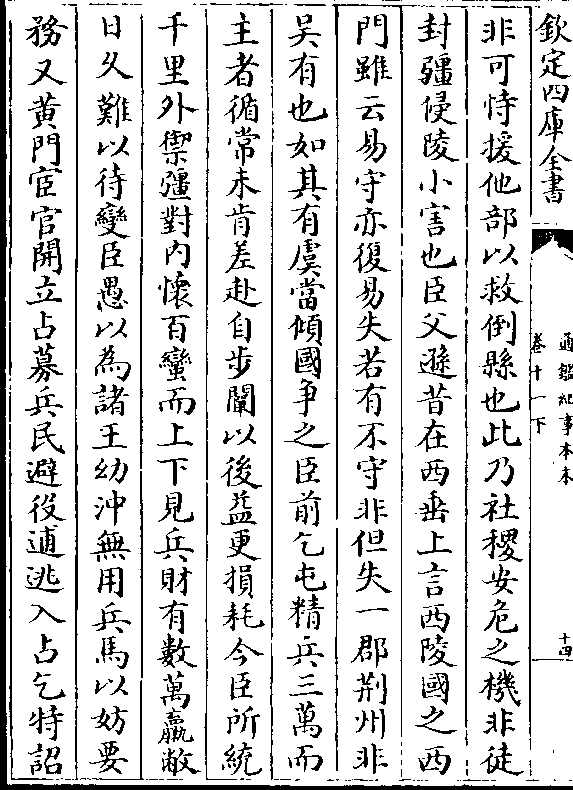 欽定四庫全書
通鑑紀事本末
卷十一下
十四
非可恃援他部以救倒縣也此乃社稷安危之機非徒
封疆侵陵小害也臣父遜昔在西垂上言西陵國之西
門雖云易守亦復易失若有不守非但失一郡荆州非
吳有也如其有虞當傾國爭之臣前乞屯精兵三萬而
主者循常未肯差赴自步闡以後益更損耗今臣所統
千里外禦彊對内懷百蠻而上下見兵財有數萬羸敝
日久難以待變臣愚以為諸王幼沖無用兵馬以妨要
務又黄門宦官開立占募兵民避役逋逃入占乞特詔